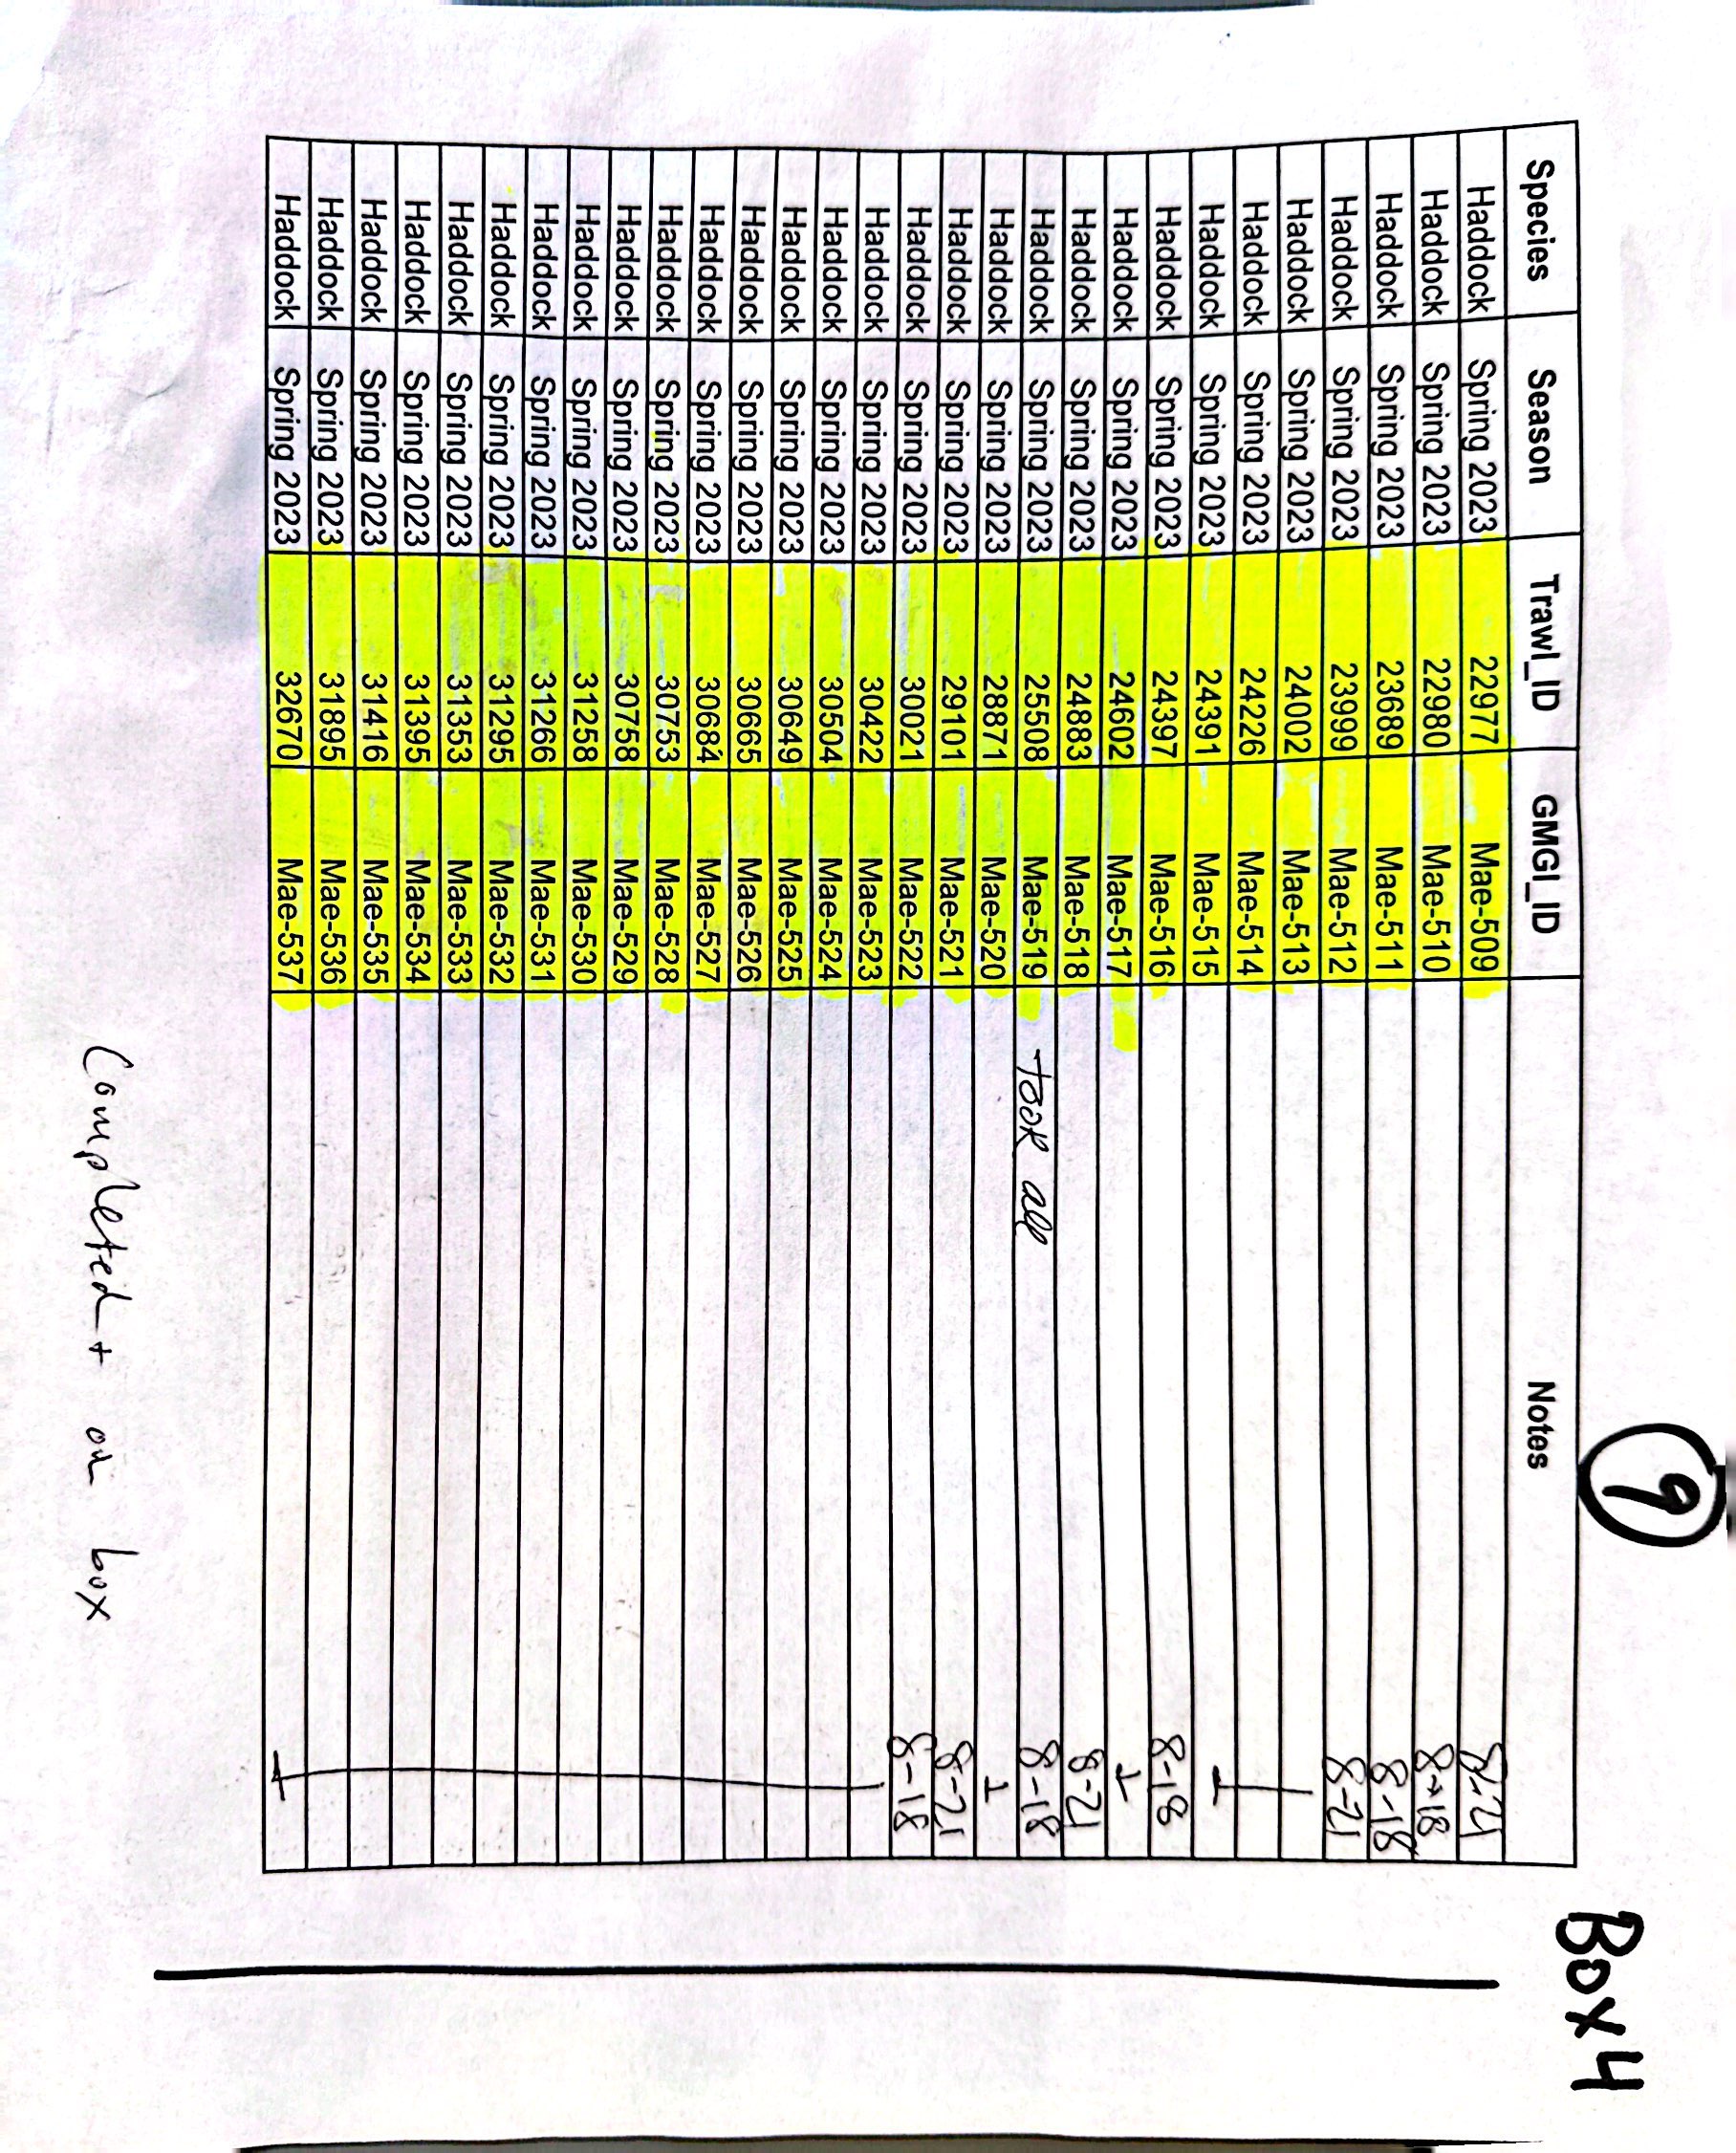 9
Box 4
Species Season Trawl_ID GMGI_ID Notes
Haddock Spring 2023 22977 Mae-509 8-21
Haddock Spring 2023 22980 Mae-510 8-18
Haddock Spring 2023 23689 Mae-511 8-18
Haddock Spring 2023 23999 Mae-512 8-21
Haddock Spring 2023 24002 Mae-513
Haddock Spring 2023 24226 Mae-514
Haddock Spring 2023 24391 Mae-515
Haddock Spring 2023 24397 Mae-516 8-18
Haddock Spring 2023 24602 Mae-517
Haddock Spring 2023 24883 Mae-518 8-21
Haddock Spring 2023 25508 Mae-519 took all 8-18
Haddock Spring 2023 28871 Mae-520
Haddock Spring 2023 29101 Mae-521 8-21
Haddock Spring 2023 30021 Mae-522 8-18
Haddock Spring 2023 30422 Mae-523
Haddock Spring 2023 30504 Mae-524
Haddock Spring 2023 30649 Mae-525
Haddock Spring 2023 30665 Mae-526
Haddock Spring 2023 30684 Mae-527
Haddock Spring 2023 30753 Mae-528
Haddock Spring 2023 30758 Mae-529
Haddock Spring 2023 31258 Mae-530
Haddock Spring 2023 31266 Mae-531
Haddock Spring 2023 31295 Mae-532
Haddock Spring 2023 31353 Mae-533
Haddock Spring 2023 31395 Mae-534
Haddock Spring 2023 31416 Mae-535
Haddock Spring 2023 31895 Mae-536
Haddock Spring 2023 32670 Mae-537
Completed + on box